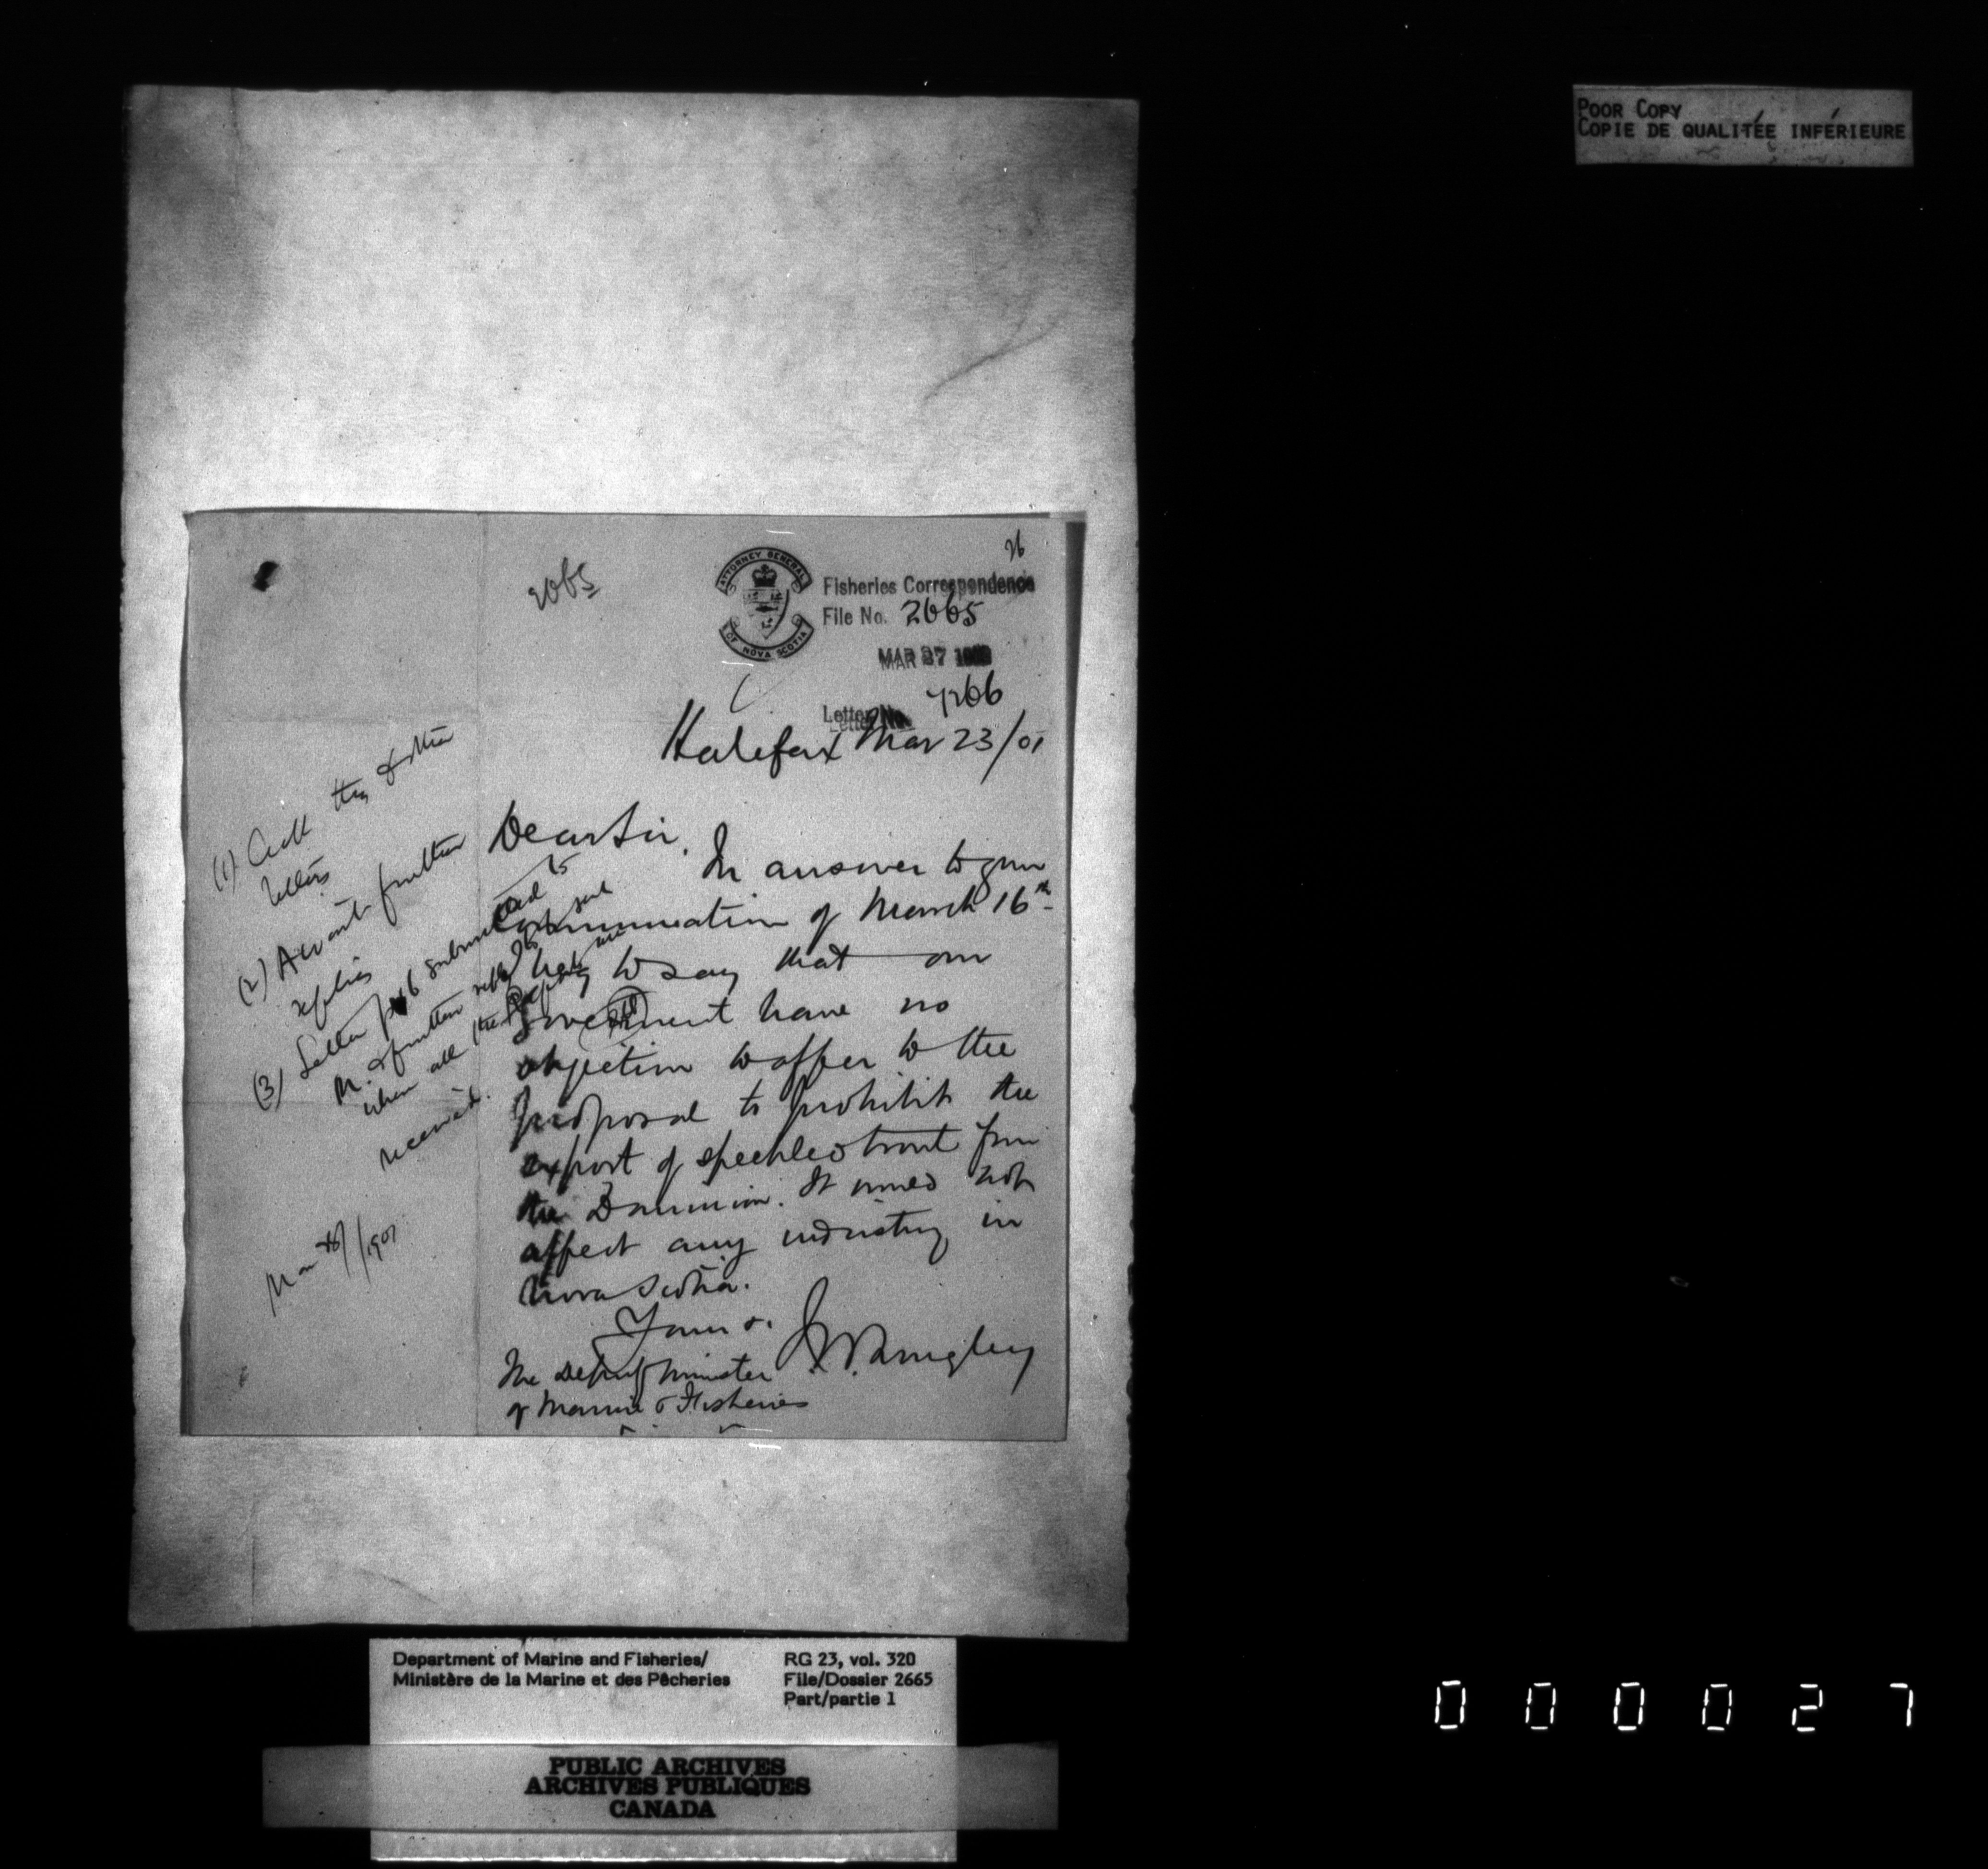 POOR COPY
COPIE DE QUALITÉE INFÉRIEURE
26
2665
ATTORNEY GENERAL
OF NOVA SCOTIA
Fisheries Correspondence
File No. 2665
MAR 27
Letter No. 4266
Halifax Mar 23/01
Dear Sir.
In answer to your
communication of March 16th
beg to say that our
Government have no
objection to offer to the
proposal to prohibit the
export of speckled trout from
the Dominion. It would not
affect any industry in
Nova Scotia.
Yours &.
J W Longley
The Deputy Minister
of Marine & Fisheries
(1) Ack this & other
letters
(2) Await further
replies
(3) Letter submitted to
M. & further
when all the
received.
Mar /1901
Department of Marine and Fisheries/
Ministère de la Marine et des Pêcheries
RG 23, vol. 320
File/Dossier 2665
Part/partie 1
PUBLIC ARCHIVES
ARCHIVES PUBLIQUES
CANADA
000027